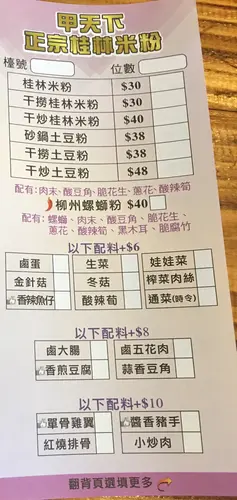 甲天下
正宗桂林米粉
檯號 位數
桂林米粉 $30
干撈桂林米粉 $30
干炒桂林米粉 $40
砂鍋土豆粉 $38
干撈土豆粉 $38
干炒土豆粉 $48
配有:肉末、酸豆角、脆花生、蔥花、酸辣筍
柳州螺螄粉 $40
配有: 螺螄、肉末、酸豆角、脆花生、
蔥花、酸辣筍、黑木耳、脆腐竹
以下配料+$6
鹵蛋 生菜 娃娃菜
金針菇 冬菇 榨菜肉絲
香辣魚仔 酸辣筍 通菜(時令)
以下配料+$8
鹵大腸 鹵五花肉
香煎豆腐 蒜香豆角
以下配料+$10
單骨雞翼 醬香豬手
紅燒排骨 小炒肉
翻背頁選填更多